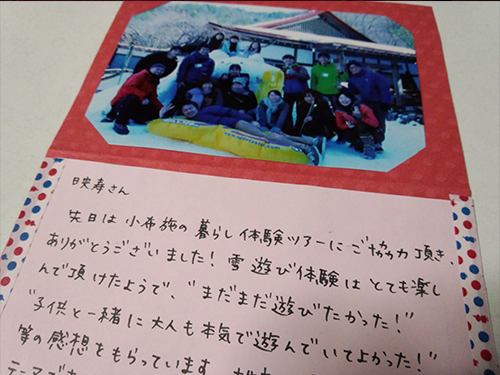 映寿さん
先日は小布施の暮らし体験ツアーにご協力頂き
ありがとうございました！雪遊び体験はとても楽し
んで頂けたようで、"まだまだ遊びたかった！"
"子供と一緒に大人も本気で遊んでいてよかった！"
等の感想をもらっています